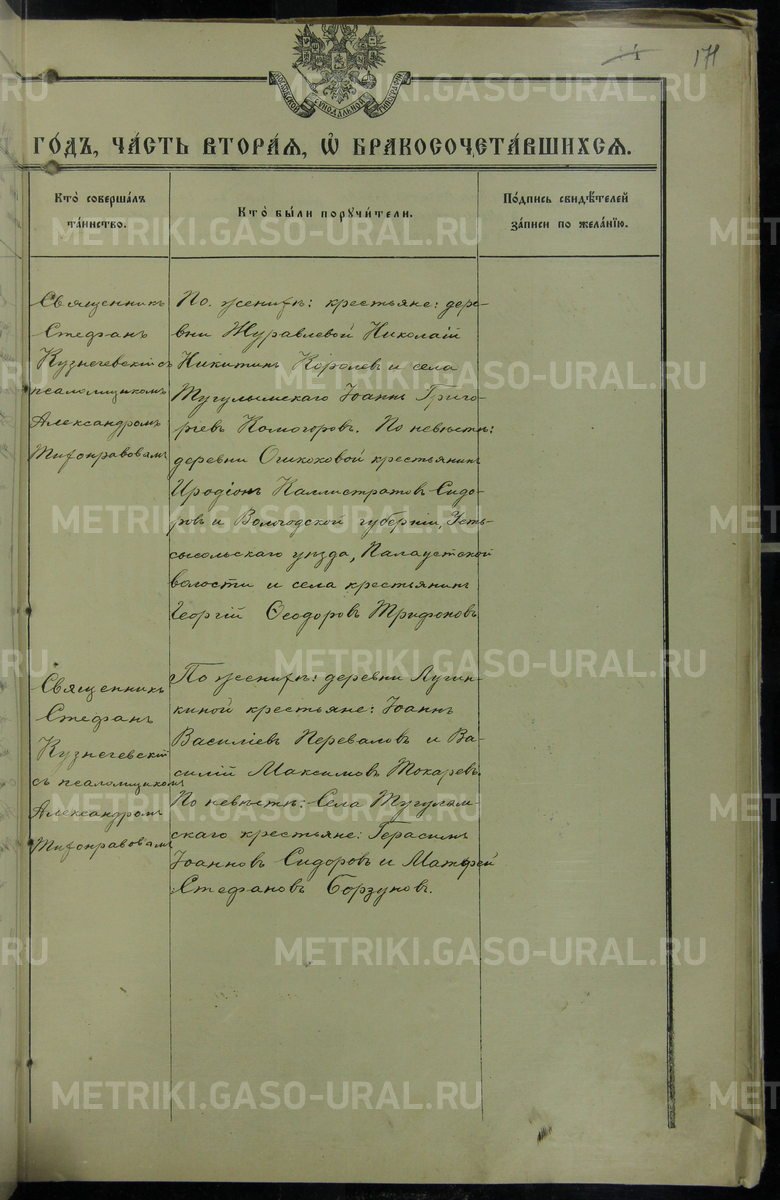 171
МОСКОВСКОЙ СѴНОДАЛЬНОЙ ТИПОГРАФІИ
ГО́ДЪ, ЧА́СТЬ ВТОРА́Я, Ѽ БРАКОСОЧЕТА́ВШИХСЯ.
Кто̀ соверша́лъ
та́инство.
Кто̀ бы́ли порꙋчи́тели.
По́дпись свидѣ́телей
за́писи по жела́нїю.
Священникъ
Стефанъ
Кузнечевскій съ
псаломщикомъ
Александромъ
По женихѣ: крестьяне: дере-
вни Журавлевой Николай
Никитинъ Королев и села
Тугулымскаго Іоаннъ Григо-
рьевъ Комогоровъ. По невѣстѣ:
деревни крестьянинъ
Иродіонъ Каллистратовъ Сидо-
ровъ и Вологодской губерніи, Усть-
сысольскаго уѣзда,
волости и села крестьянинъ
Георгій Ѳеодоровъ Трифоновъ
Священникъ
Стефанъ
Кузнечевскій
съ псаломщикомъ
Александромъ
По женихѣ: деревни Лучин-
киной крестьяне: Іоаннъ
Василіевъ Перевалов и Ва-
силій Максимовъ Токаревъ.
По невѣстѣ: Села Тугулым-
скаго крестьяне: Герасимъ
Іоанновъ Сидоровъ и Матфей
Стефановъ Борзуновъ.
METRIKI.GASO-URAL.RU